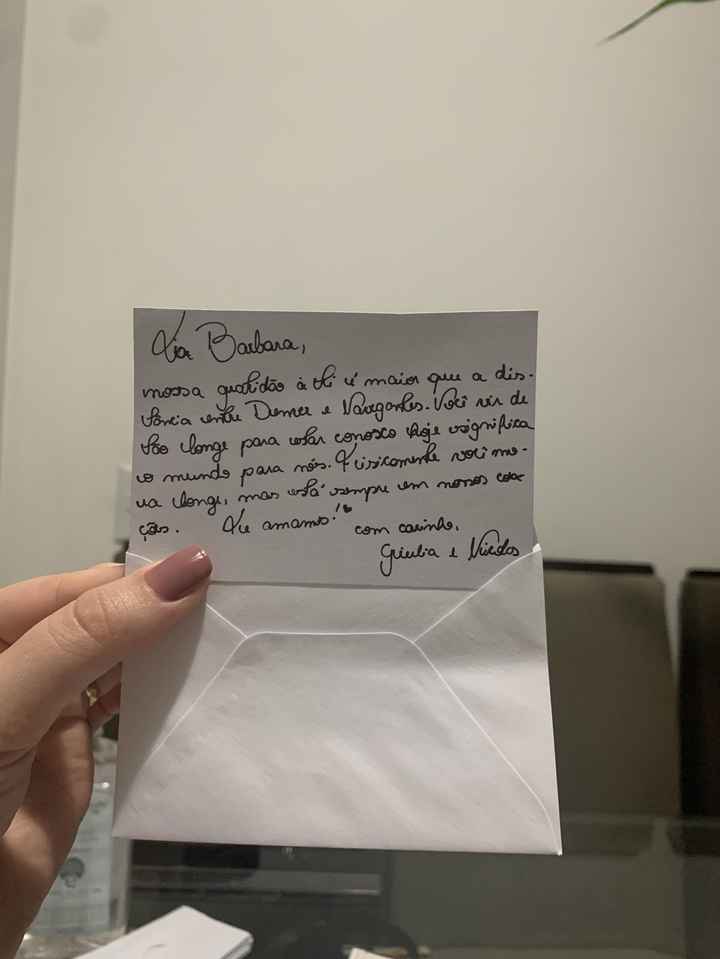 Tia Barbara,
nossa gratidão à ti é maior que a dis-
tância entre Denver e Navegantes. Você vir de
tão longe para estar conosco hoje significa
o mundo para nós. Fisicamente você mo-
ra longe, mas está sempre em nossos cora
ções. Te amamos!♥
com carinho,
Giulia e Nicolas